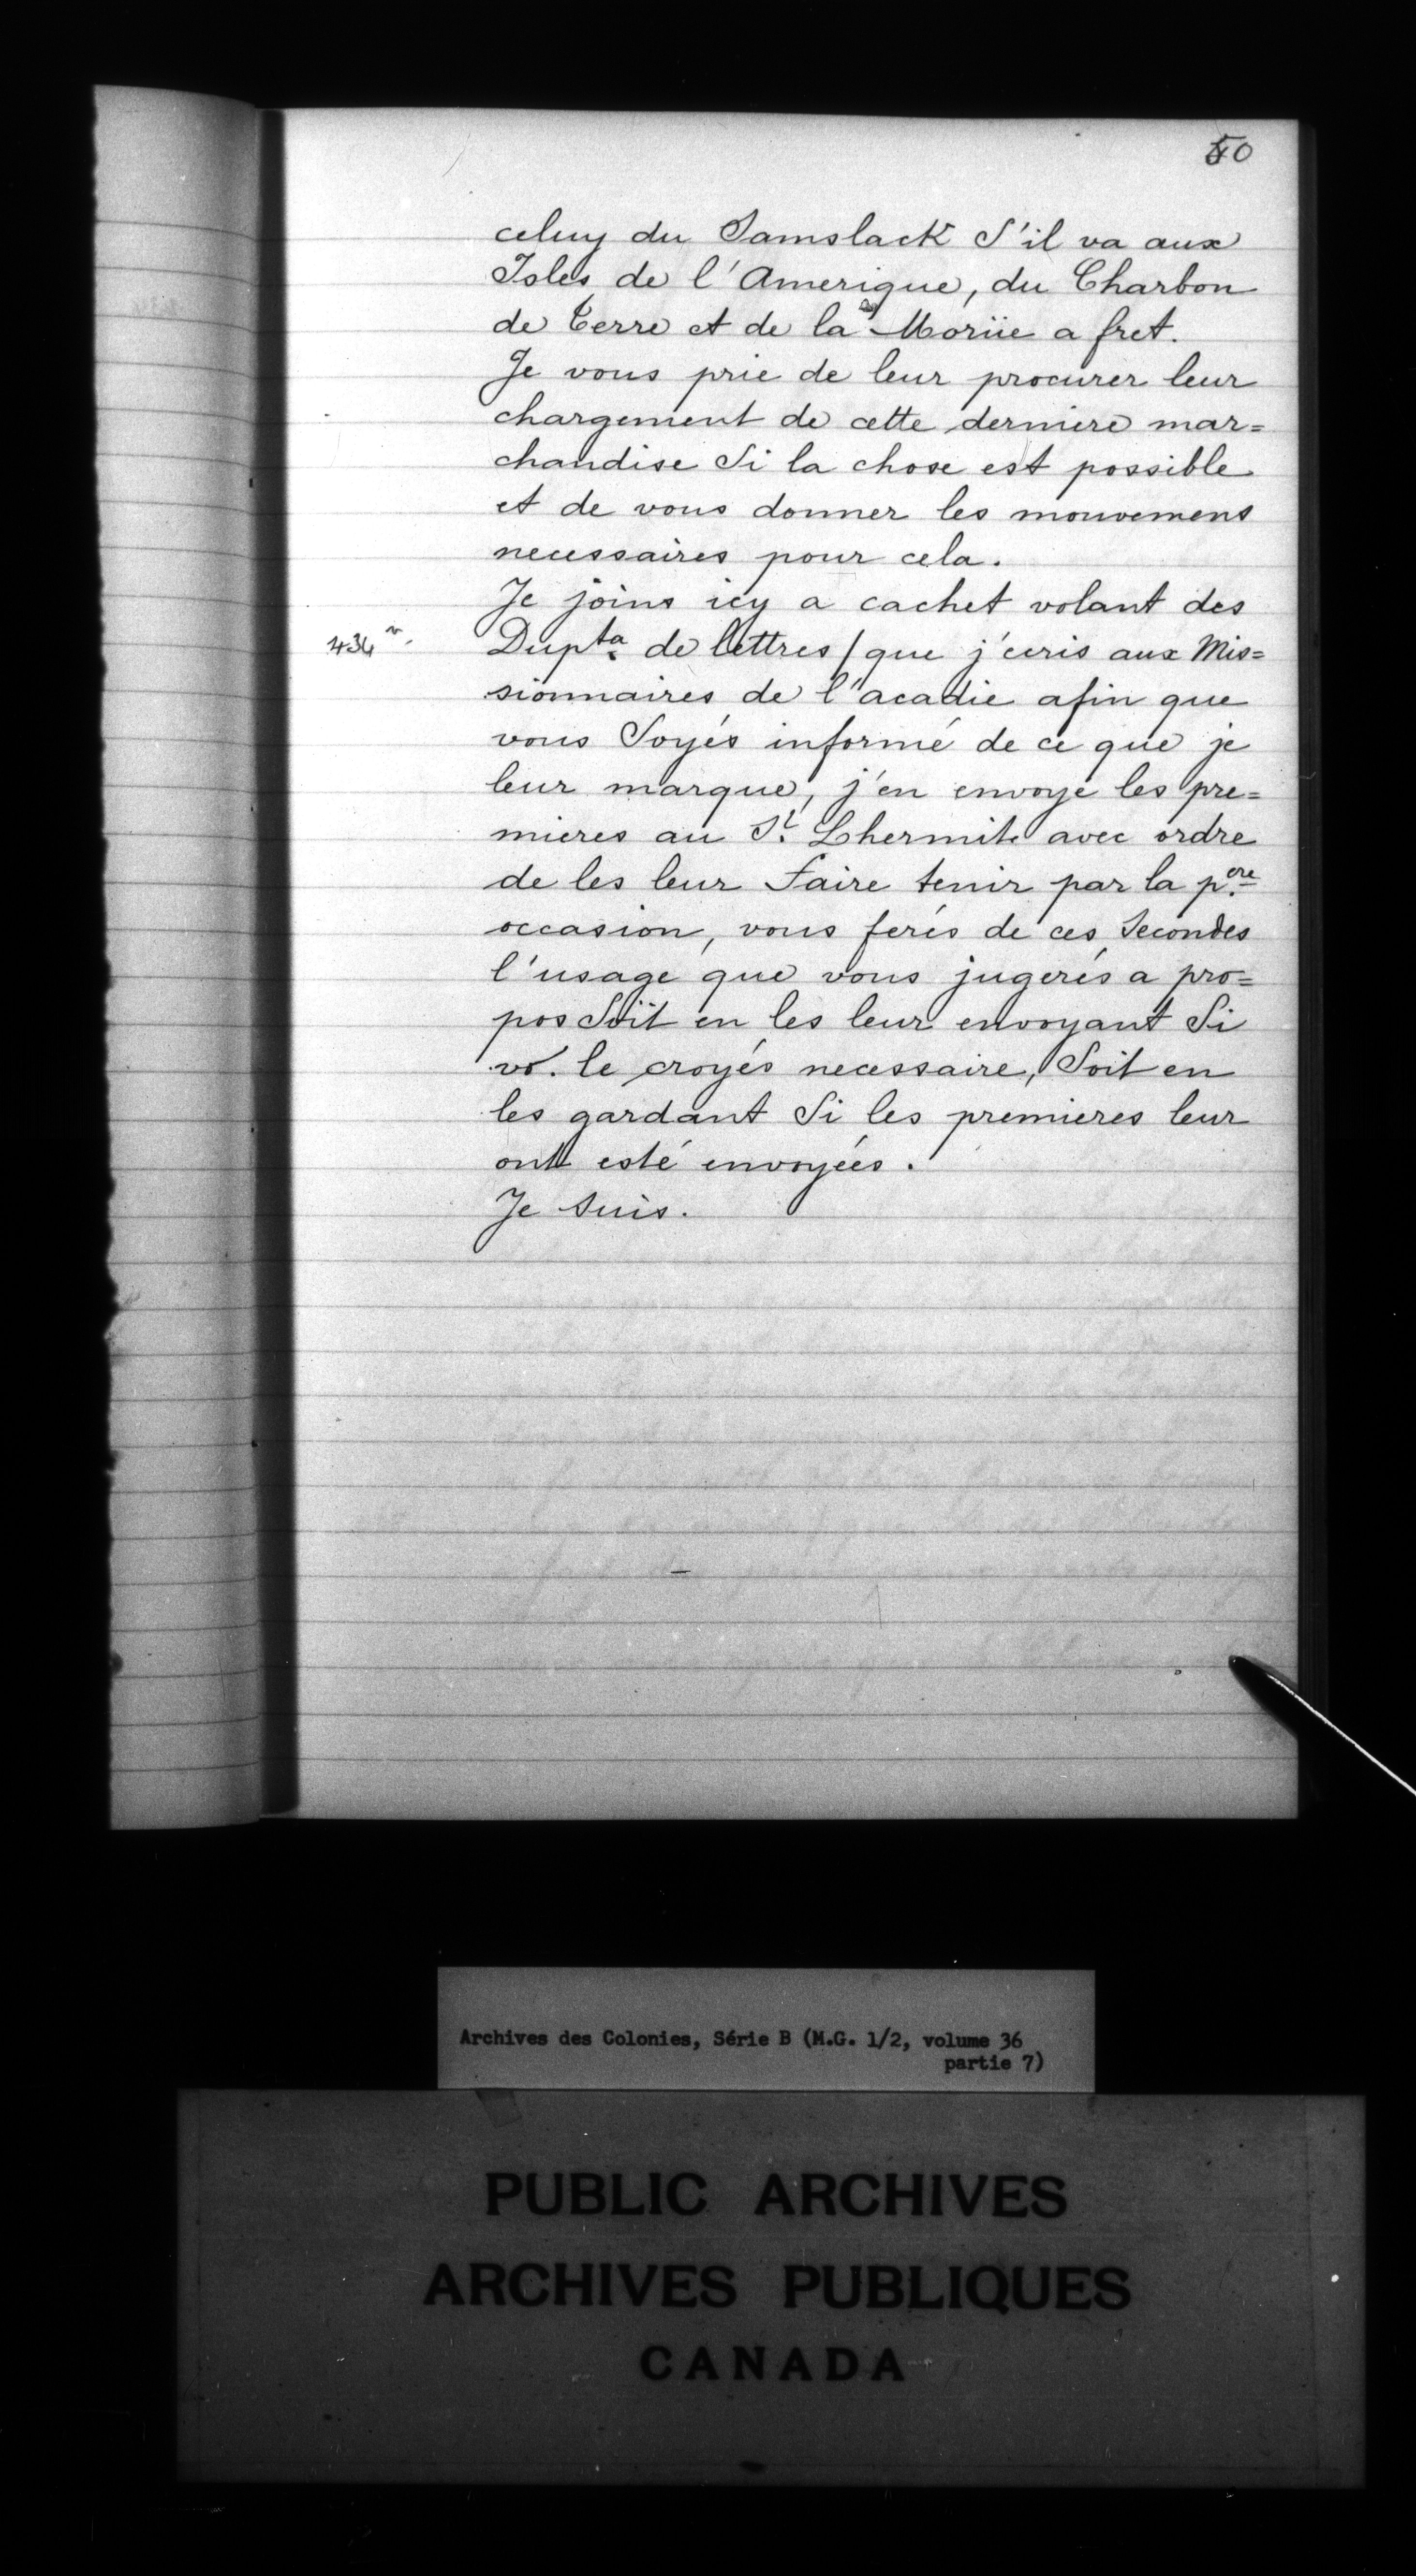 50
celuy du Samslack S'il va aux
Isles de l'Amerique, du Charbon
de terre et de la Moriie a fret.
Je vous prie de leur procurer leur
chargement de cette derniere mar=
chandise Si la chose est possible
et de vous donner les mouvemens
necessaires pour cela.
Je joins icy a cachet volant des
434 v. Dupta. de lettres / que j'ecris aux Mis=
sionnaires de l'acadie afin que
vous Soyés informé de ce que je
leur marque, j'en envoye les pre=
mieres au Sr. Lhermite avec ordre
de les leur faire tenir par la p.ere
occasion, vous ferés de ces Secondes
l'usage que vous jugerés a pro=
pos Soit en les leur envoyant Si
vs. le croyés necessaire, Soit en
les gardant Si les premieres leur
ont esté envoyées.
Je suis.
Archives des Colonies, Série B (M.G. 1/2, volume 36
partie 7)
PUBLIC ARCHIVES
ARCHIVES PUBLIQUES
CANADA